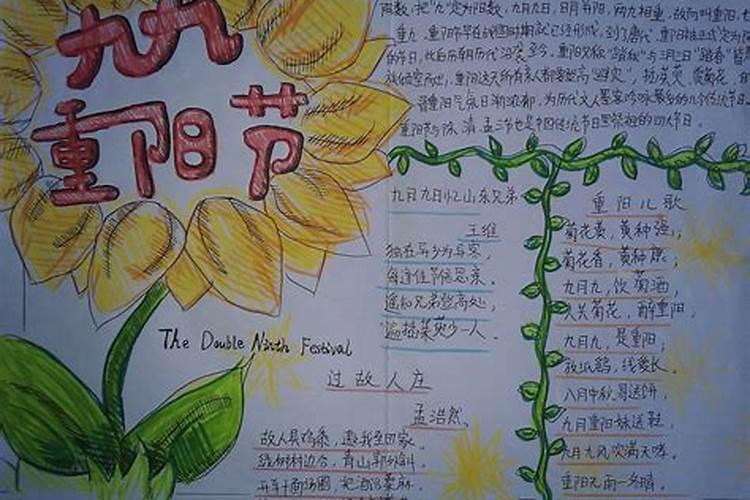 九九
重阳节
阳数,把"九"定为阳数,九月九日,日月并阳,两九相重,故而叫重阳,
重九,重阳节早在战国时期就已经形成,到了唐代,重阳被正式定为
的节日,此后历朝历代沿袭至今。重阳又称"踏秋"与三月三日"踏春"皆
重阳这天所有亲人都要登高"避灾",插茱萸、赏菊花。
重阳节与除、清、盂三节也是中国传统节日里祭祖的四大节日。
九月九日忆山东兄弟
王维
独在异乡为异客,
每逢佳节倍思亲。
遥知兄弟登高处,
遍插茱萸少一人。
重阳儿歌
菊花黄,黄种强;
菊花香,黄种康;
九月九,饮菊酒,
人共菊花,醉重阳,
九月九,是重阳;
放纸鹞,线爱长。
八月中秋哥送饼,
九月重阳妹送鞋,
九月九风吹满天哮。
重阳无雨一冬晴。
The Double Ninth Festival
过故人庄
孟浩然。
故人具鸡黍,邀我至田家。
绿树村边合,青山郭外斜。
开轩面场圃,把酒话桑麻。